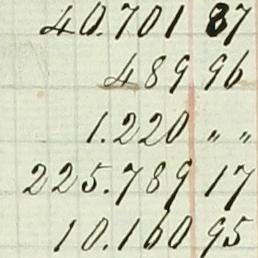 40.701 87
489 96
1.220 " "
225.789 17
10.160 95